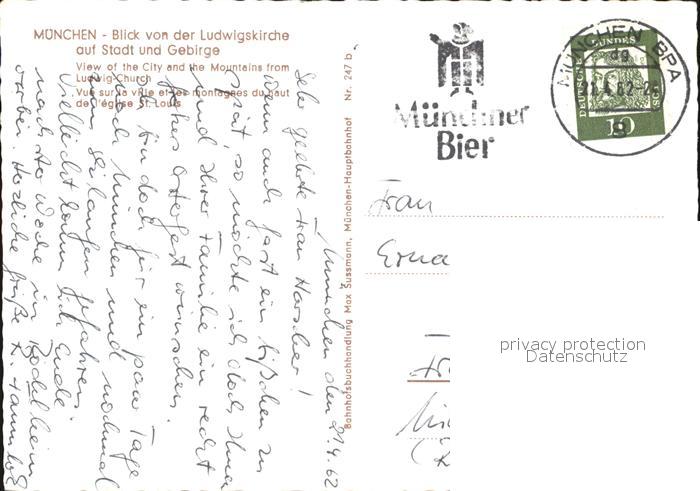 MÜNCHEN - Blick von der Ludwigskirche
auf Stadt und Gebirge
View of the City and the Mountains from
Ludwig-Church
Vue sur la ville et les montagnes du haut
de l'église St. Louis
Nr. 247 b
Bahnhofsbuchhandlung Max Sussmann, München-Hauptbahnhof
München den 21.4.62
Sehr geehrte Frau Harscher!
Wenn auch fast ein bißchen zu
spät, so möchte ich doch Ihnen
und Ihrer Familie ein recht
Osterfest wünschen.
Bin doch für ein paar Tage
nach München und nochmal
zum gefahren.
Vielleicht ich Ende
nächster Woche in Rödelheim
vorbei. Herzliche Grüße
Münchner
Bier
MÜNCHEN BPA
DEUTSCHE BUNDESPOST
10
Frau
Erna
privacy protection
Datenschutz